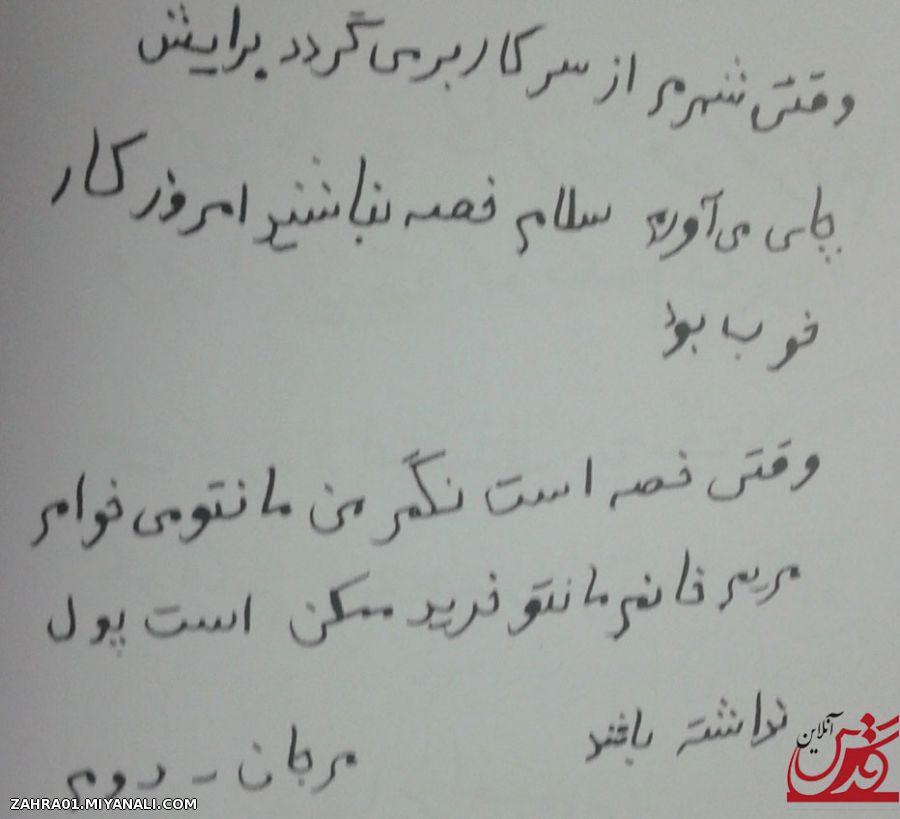 وقتی شهرم از سر کار بر می گردد برایش
چای می آورم سلام خصه نباشید امروز کار
خوب بود
وقتی خصه است نگم من مانتو می خوام
مریم خانم مانتو خرید ممکن است پول
نداشته باشد
مرجان - دوم
قدس آنلاین
ZAHRA01.MIYANALI.COM